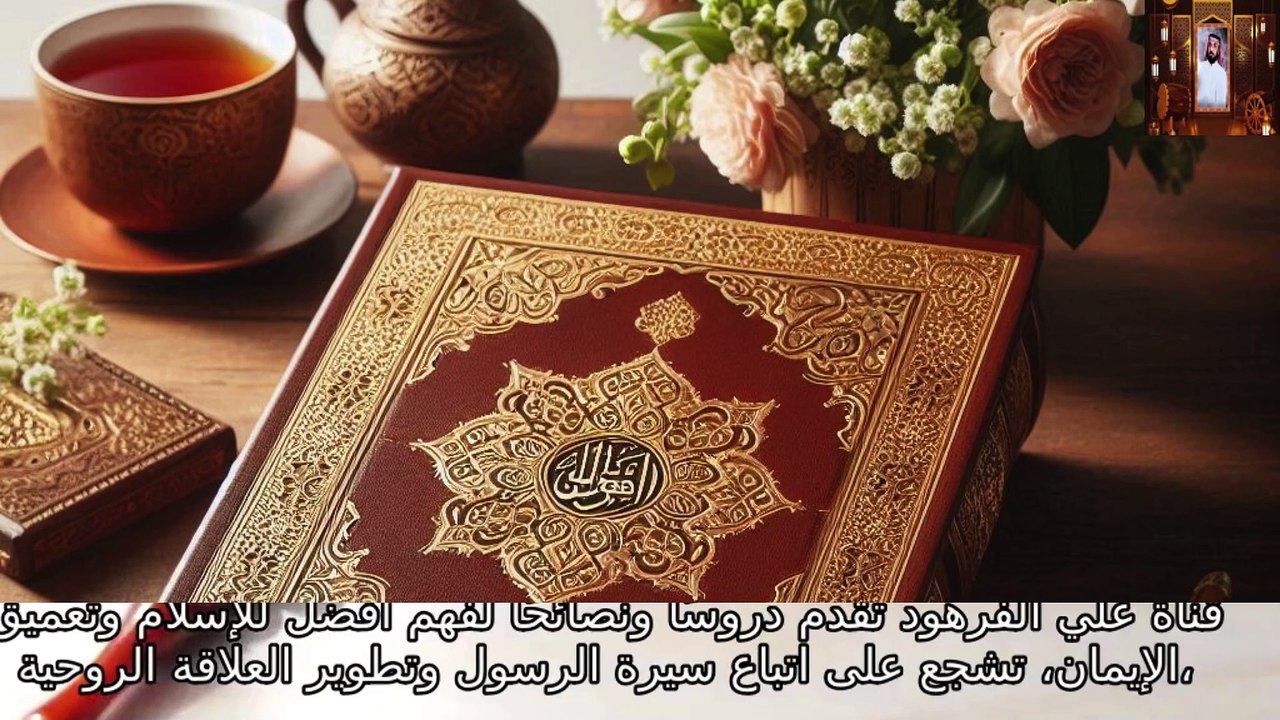 قناة علي الفرهود تقدم دروسًا ونصائحًا لفهم أفضل للإسلام وتعميق
الإيمان، تشجع على اتباع سيرة الرسول وتطوير العلاقة الروحية،